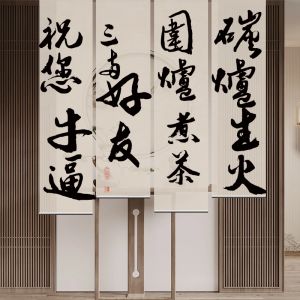 碳爐生火
圍爐煮茶
三五好友
祝您牛逼